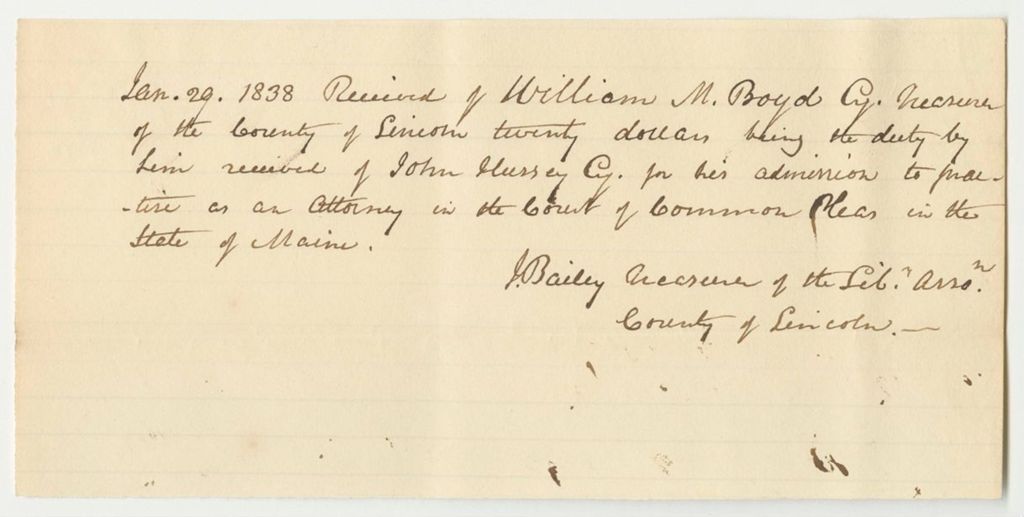 Jan. 29. 1838 Received of William M. Boyd Esq. Treasurer
of the County of Lincoln twenty dollars being the duty by
him received of John Hussey Esq. for his admission to prac-
-tise as an Attorney in the Court of Common Pleas in the
State of Maine.
J. Bailey Treasurer of the Lib.y Asso.n
County of Lincoln.—